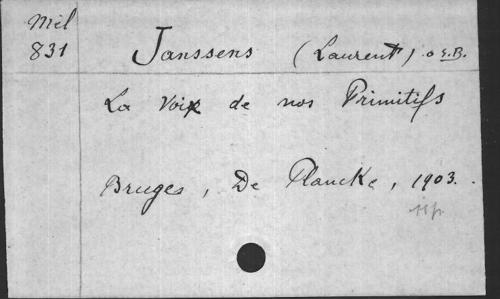 Mél
831
Janssens (Laurent) O.S.B.
La Voix de nos Primitifs
Bruges, De Plancke, 1903.
11p.